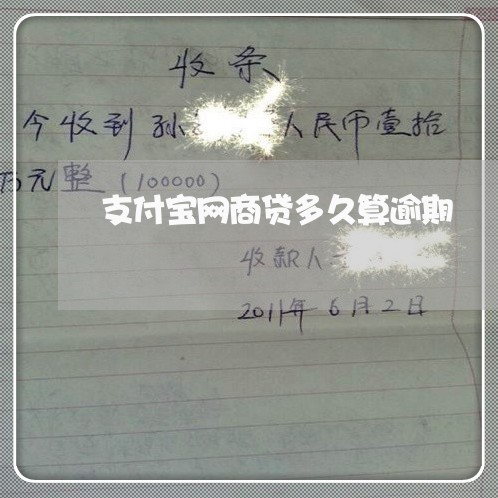 收条
今收到孙 人民币壹拾
万元整(100000)
支付宝网商贷多久算逾期
收款人
2011年6月2日